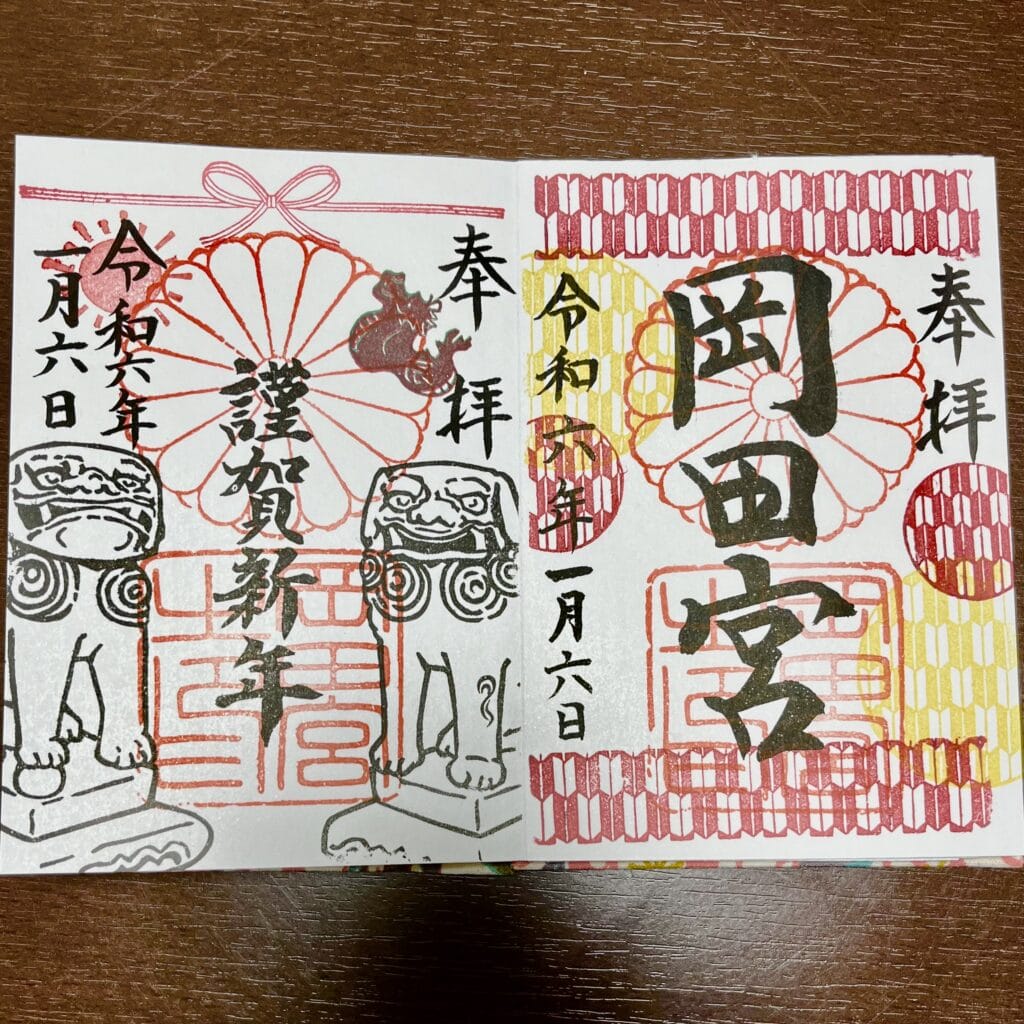 奉拝
岡田宮
令和六年
一月六日
奉拝
謹賀新年
令和六年
一月六日